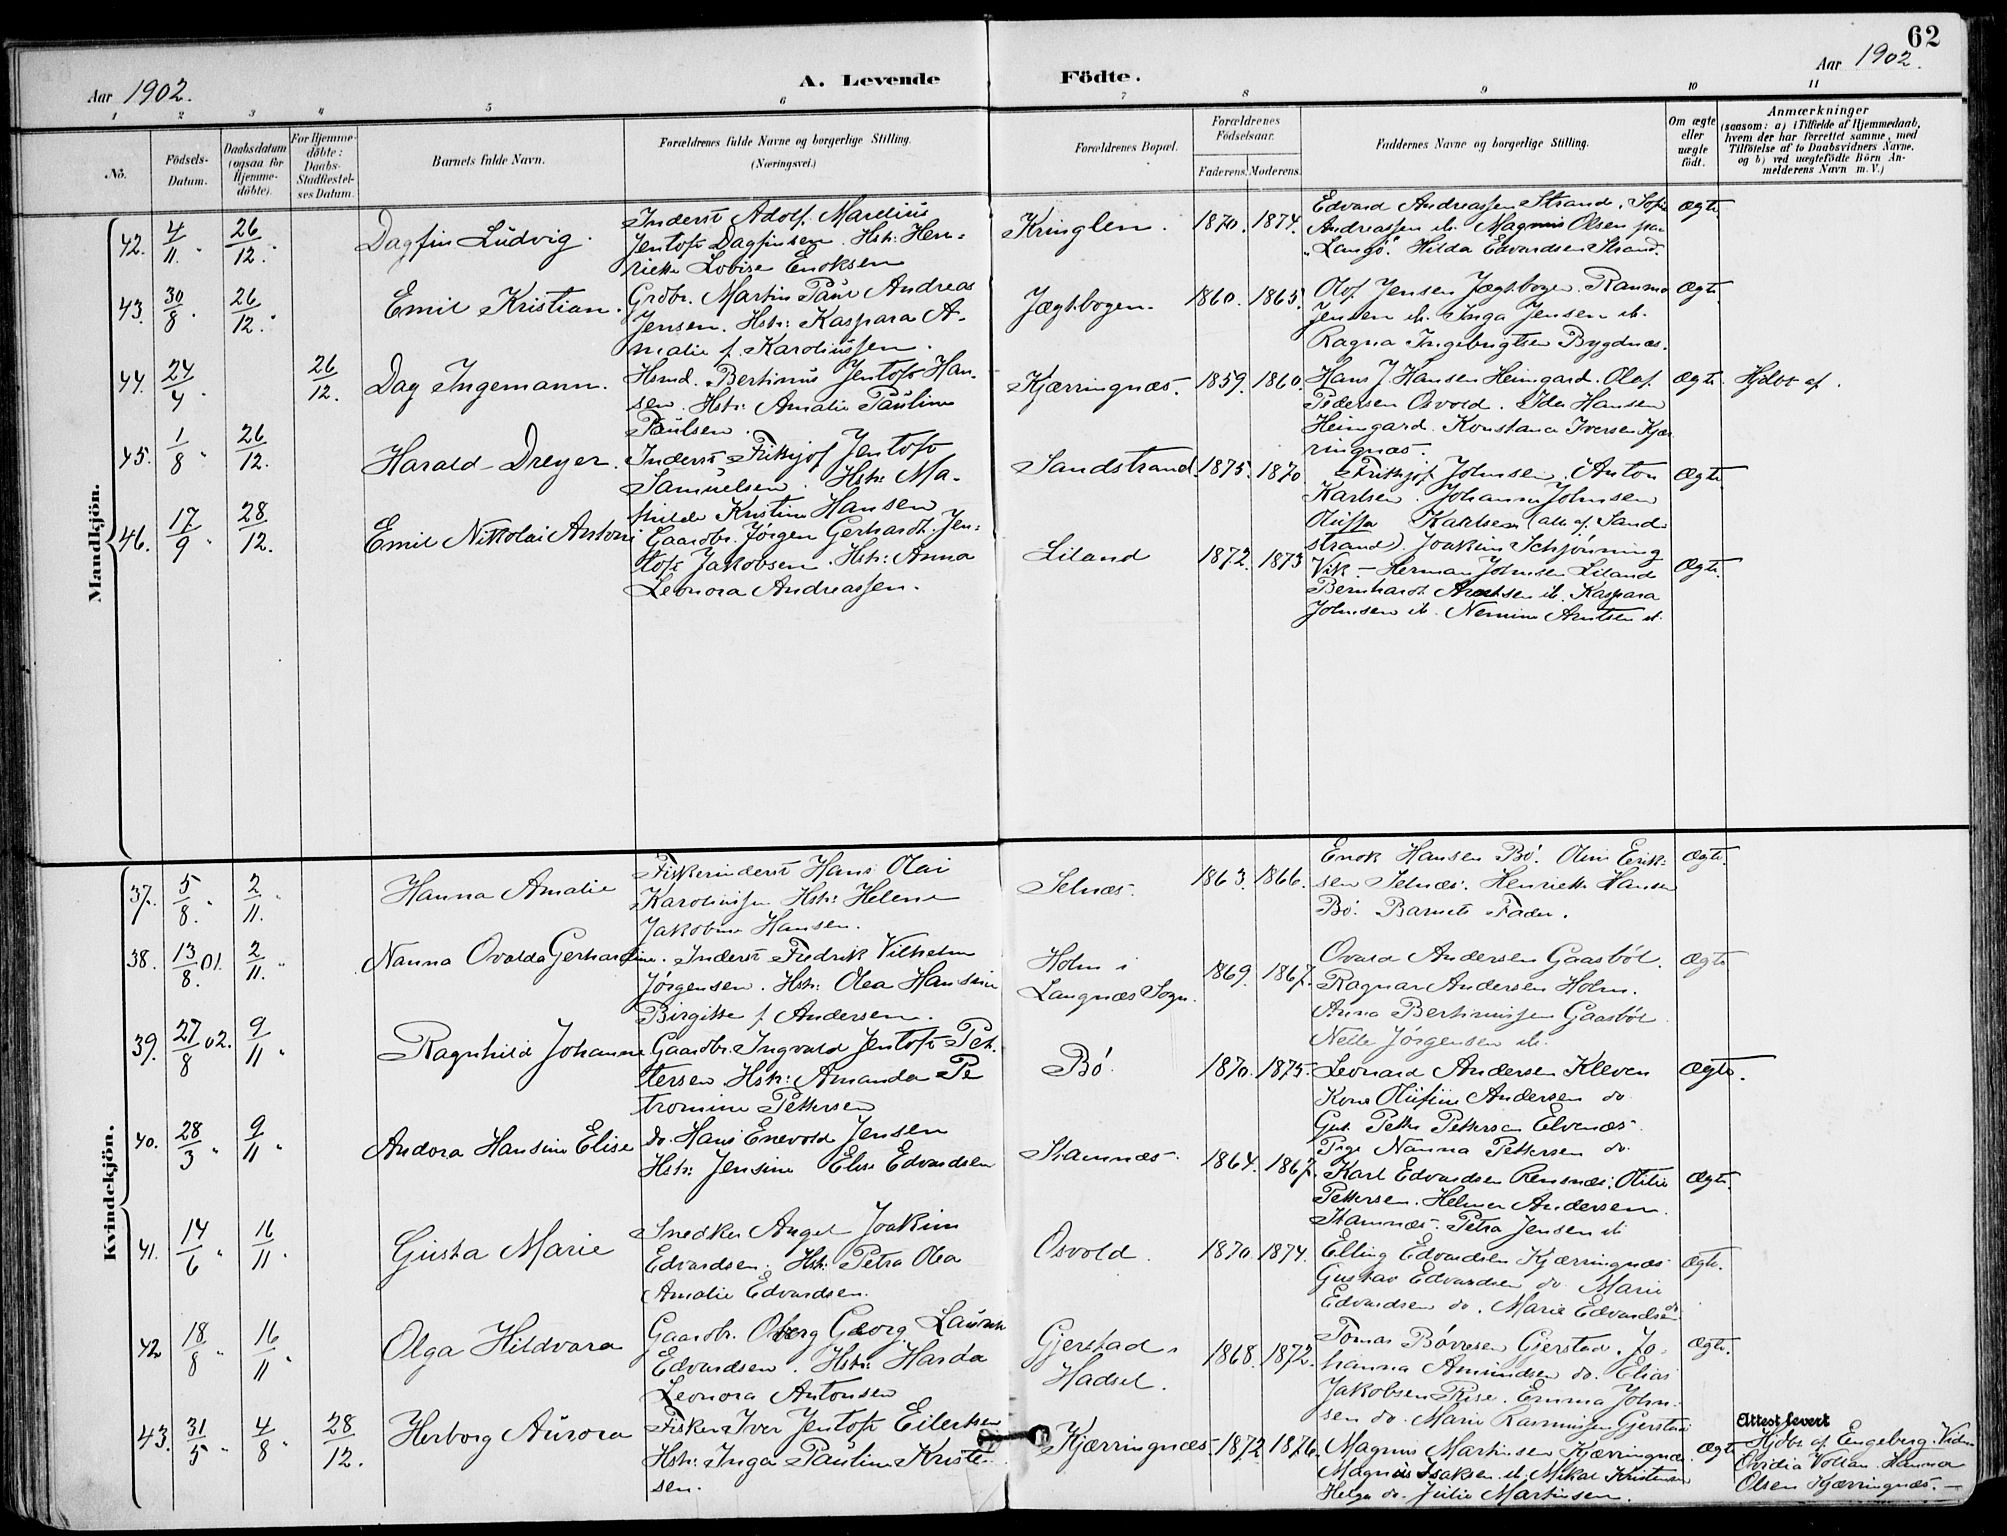 62
Aar 1902.
A. Levende Födte.
Aar 1902.
1 2 3 4 5 6 7 8 9 10 11
No.
Födsels-Datum.
Daabsdatum (ogsaa for Hjemmedöbte).
For Hjemmedöbte: Daabs-Stadfæstelses Datum.
Barnets fulde Navn.
Forældrenes fulde Navne og borgerlige Stilling.
(Næringsvei.)
Forældrenes Bopæl.
Forældrenes Födselsaar.
Faderens. Moderens.
Faddernes Navne og borgerlige Stilling.
Om ægte eller uægte födt.
Anmærkninger
(saasom: a) i Tilfælde af Hjemmedaab, hvem der har forrettet samme, med Tilföielse af to Daabsvidners Navne, og b) ved uægtefödte Börn Anmelderens Navn m. V.)
Mandkjön.
42. 4/11 " 26/12. " Dagfin Ludvig.
Inderst Adolf Marelius
Jentoft Dagfinsen. Hstr: Hen-
riette Lovise Enoksen
Kringlen. 1870. 1874.
Edvard Andreassen Strand. Sofie
Andreassen ib. Magnus Olsen paa
"Langö". Hilda Edvardsen Strand.
Ægte
43. 30/8 " 26/12. " Emil Kristian.
Grdbr. Martin Paul Andreas
Jensen. Hstr: Kaspara A-
malie f. Karoliussen.
Jægtbogen. 1860. 1865.
Olof Jensen Jægtbogen.
Jensen ib. Inga Jensen ib.
Ragna Ingebrigtsen Bygdnæs.
Ægte.
44. 24/4 " 26/12. Dag Ingemann.
Hsmd. Bertinus Jentoft Han-
sen. Hstr: Amalie Pauline
Paulsen.
Kjærringnæs. 1859. 1860.
Hans J. Hansen Heimgard. Olaf
Pedersen Osvold. Ida Hansen
Heimgard. Konstance Iversen Kjær-
ringnæs.
Ægte Hjdbt af.
45. 1/8 " 26/12. Harald Dreyer.
Inderst Frithjof Jentoft
Samuelsen. Hstr: Ma-
thilde Kristine Hansen
Sandstrand. 1875. 1870.
Frithjof Johnsen, Anton
Karlsen. Johanna Johnsen
Karlsen (alle af Sand-
strand).
Ægte
46. 17/9 " 28/12. Emil Nikolai Antoni
Gaardbr. Jørgen Gerhardt Jen-
toft Jakobsen. Hstr: Anna
Leonora Andreassen.
Liland 1872. 1873
Joakim Schjønning
Vik. - Herman Johnsen Liland
Bernhardt Arntsen ib. Kaspara
Johnsen ib. Nemine Arntsen ib.
Ægte.
Kvindekjön.
37. 5/8. " 2/11. " Hanna Amalie
Fiskerinderst Hans Olai
Karoliussen Hstr: Helene
Jakobine Hansen.
Selnæs. 1863. 1866.
Enok Hansen Bö. Olina Erik-
sen Selnæs. Henriette Hansen
Bö. Barnets Fader.
Ægte.
38. 13/8. 01. 2/11. " Nanna Ovalda Gerhardine.
Inderst Fredrik Vilhelm
Jørgensen. Hstr: Olea Hansine
Birgitte f. Andersen.
Holm i
Langnæs Sogn. 1869. 1867.
Ovard Andersen Gaasböl.
Ragnar Andersen Holm.
Anna Bertinussen Gaasböl
Nelle Jørgensen ib.
Ægte
39. 27/8 02. 9/11 " Ragnhild Johanne
Gaardbr. Ingvald Jentoft Pet-
tersen Hstr: Amanda Pe
tromine Pettersen
Bö. 1870. 1875.
Leonard Andersen Kleven
Kone Olufine Andersen do
Gut. Petter Pettersen Elvenæs.
Pige Nanna Pettersen do.
Ægte.
40. 28/3 " 9/11 " Andora Hansine Elise
do. Hans Enevold Jensen
Hstr: Jensine Elise Edvardsen
Stamnæs. 1864. 1867.
Karl Edvardsen Rensnæs. Otilie
Pettersen. Helmer Andersen
Stamnæs. Petra Jensen ib
Ægte.
41. 14/6 " 16/11. Gusta Marie
Snedker Angel Joakim
Edvardsen. Hstr: Petra Olea
Amalie Edvardsen.
Osvold. 1870. 1874.
Elling Edvardsen Kjærringnæs
Gustav Edvardsen do. Marie
Edvardsen do. Marie Edvardsen do
Ægte.
42 18/8 " 16/11 " Olga Hildvara
Gaardbr. Oberg Georg Laurits
Edvardsen. Hstr: Harda
Leonora Antonsen
Gjerstad i
Hadsel. 1868. 1872.
Tomas Bövresen Gjerstad. Jo-
hanna Amundsen do. Elias
Jakobsen Rise. Emma John-
sen do. Marie Rasmussen Gjerstad
Ægte.
43. 31/5 " 4/8 " 28/12. Herborg Aurora
Fisker Iver Jentoft Eilertsen
Hstr: Inga Pauline Kristen-
sen.
Kjærringnæs. 1872 1876.
Magnus Martinsen Kjærringnæs.
Magnus Isaksen ib. Mikal Kristensen
Helga do. Julie Martinsen.
Ægte
Attest levert
Hjdbt. af Engeberg. Vidn
Ovidia Voltan. Hanna
Olsen Kjærringnæs. -